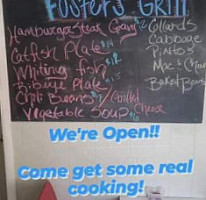 Fosters Grill
Hamburger Steak Gravy $12
Catfish Plate $14
Whiting fish $12
Ribeye Plate
Chili Beans / Grilled Cheese
Vegetable Soup
Collards
Cabbage
Pintos
Mac &
Baked Beans
We're Open!!
Come get some real
cooking!